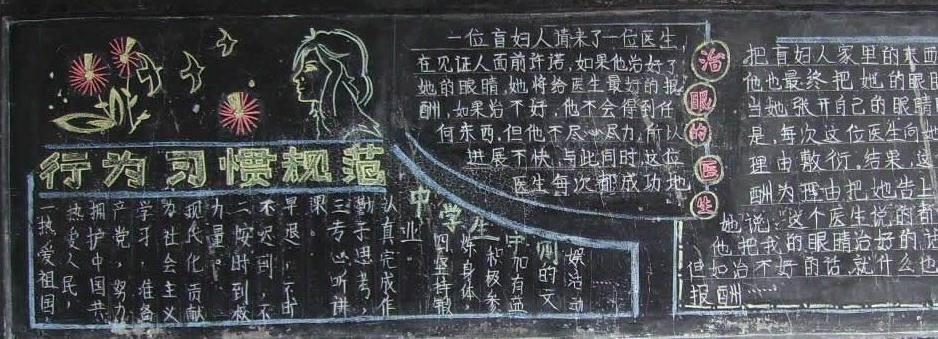 行为习惯规范
中学生守则
一热爱祖国
热爱人民,
拥护中国共
产党,努力
学习,准备
为社会主义
现代化贡献
力量。
二按时到校
不迟到,不
早退,不旷
课。
三专心听讲
勤于思考,
认真完成作
业。
四坚持锻
炼身体,
积极参
加有益
的文
娱活动
一位盲妇人请来了一位医生,
在见证人面前许诺,如果他治好了
她的眼睛,她将给医生最好的报
酬,如果治不好,他不会得到任
何东西,但他不尽心尽力,所以
进展不快,与此同时,这位
医生每次都成功地
治眼的医生
把盲妇人家里的东西
他也最终把她的眼睛
当她张开自己的眼睛
是,每次这位医生向她
理由敷衍,结果,这
酬为理由把她告上
她说:"这个医生说的都
他把我的眼睛治好的话
但如治不好的话,就什么也
报酬……